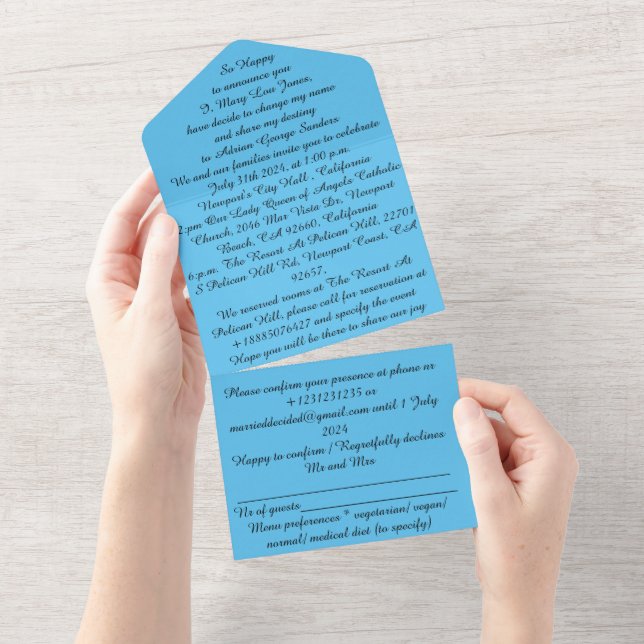 So Happy
to announce you
I, Mary Lou Jones,
have decide to change my name
and share my destiny
to Adrian George Sanders
We and our families invite you to celebrate
July 31th 2024, at 1:00 p.m.
Newport's City Hall , California
2:pm Our Lady Queen of Angels Catholic
Church, 2046 Mar Vista Dr, Newport
Beach, CA 92660, California
6:p.m. The Resort At Pelican Hill, 22701
S Pelican Hill Rd, Newport Coast, CA
92657,
We reserved rooms at The Resort At
Pelican Hill, please call for reservation at
+18885076427 and specify the event
Hope you will be there to share our joy
Please confirm your presence at phone nr
+1231231235 or
marrieddecided@gmail.com until 1 July
2024
Happy to confirm / Regretfully declines
Mr and Mrs
Nr of guests
Menu preferences * vegetarian/ vegan/
normal/ medical diet (to specify)